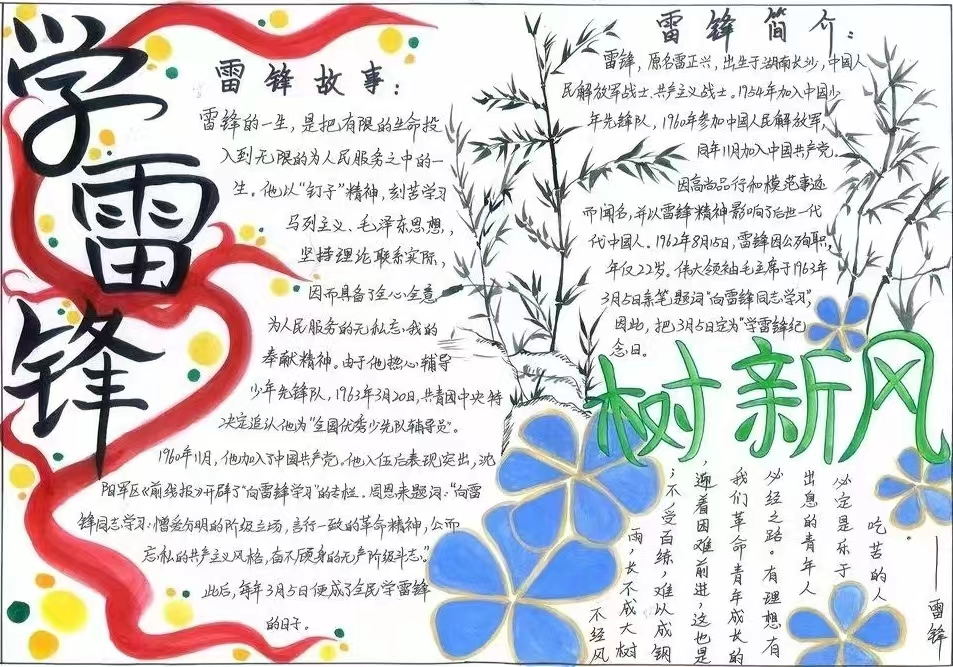 学雷锋
雷锋故事：
雷锋的一生，是把有限的生命投
入到无限的为人民服务之中的一
生。他以“钉子”精神，刻苦学习
马列主义、毛泽东思想，
坚持理论联系实际，
因而具备了全心全意
为人民服务的无私忘我的
奉献精神。由于他热心辅导
少年先锋队，1963年3月20日，共青团中央特
决定追认他为“全国优秀少先队辅导员”。
1960年11月，他加入了中国共产党，他入伍后表现突出，沈
阳军区《前线报》开辟了“向雷锋学习”的专栏。周恩来题词：“向雷
锋同志学习：憎爱分明的阶级立场，言行一致的革命精神，公而
忘私的共产主义风格，奋不顾身的无产阶级斗志。”
此后，每年3月5日便成了全民学雷锋
的日子。
雷锋简介：
雷锋，原名雷正兴，出生于湖南长沙，中国人
民解放军战士、共产主义战士。1954年加入中国少
年先锋队，1960年参加中国人民解放军，
同年11月加入中国共产党。
因高尚品行和模范事迹
而闻名，并以雷锋精神影响了后世一代
代中国人。1962年8月15日，雷锋因公殉职，
年仅22岁。伟大领袖毛主席于1963年
3月5日亲笔题词“向雷锋同志学习”，
因此，把3月5日定为“学雷锋纪
念日。
树新风
不经风
雨，长不成大树
；不受百练，难以成钢
，迎着困难前进，这也是
我们革命青年成长的
必经之路。有理想有
出息的青年人
必定是乐于
吃苦的人。
——雷锋